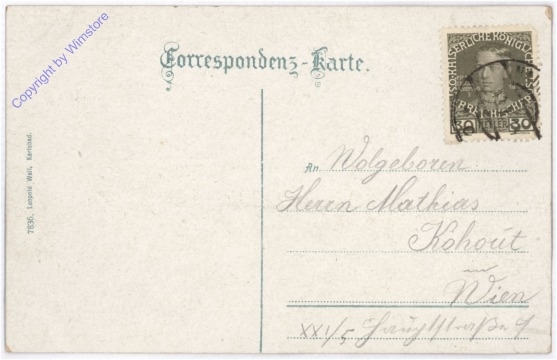 Copyright by Wimstore
Correspondenz-Karte.
30 HELLER 30
An Wolgeboren
Herrn Mathias
Kohout
in
Wien
XXI/5 Hauptstraße
7836, Leopold Weil, Karlsbad.